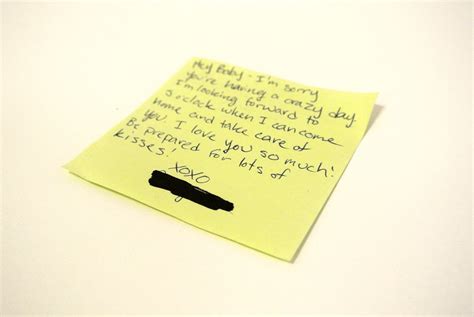 Hey Baby - I'm sorry
you're having a crazy day
I'm looking forward to
5 o'clock when I can come
home and take care of
you. I love you so much!
Be prepared for lots of
kisses!
XOXO